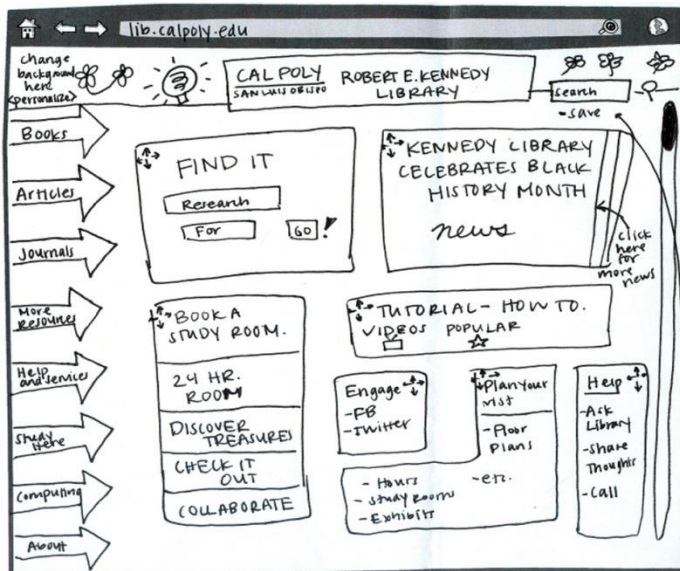 lib.calpoly.edu
change
background
here
<personalize>
CAL POLY
SAN LUIS OBISPO
ROBERT E. KENNEDY
LIBRARY
search
-save
Books
Articles
Journals
More
Resources
Help
and services
Study
Here
Computing
About
FIND IT
Research
For
GO!
KENNEDY LIBRARY
CELEBRATES BLACK
HISTORY MONTH
news
click
here
for
more
news
BOOK A
STUDY ROOM.
24 HR.
ROOM
DISCOVER
TREASURES
CHECK IT
OUT
COLLABORATE
TUTORIAL- HOW TO.
VIDEOS POPULAR
Engage
-FB
-Twitter
Plan your
visit
-Floor
Plans
-etc.
- Hours
- Study rooms
- Exhibits
Help
-Ask
Library
-Share
Thoughts
-Call